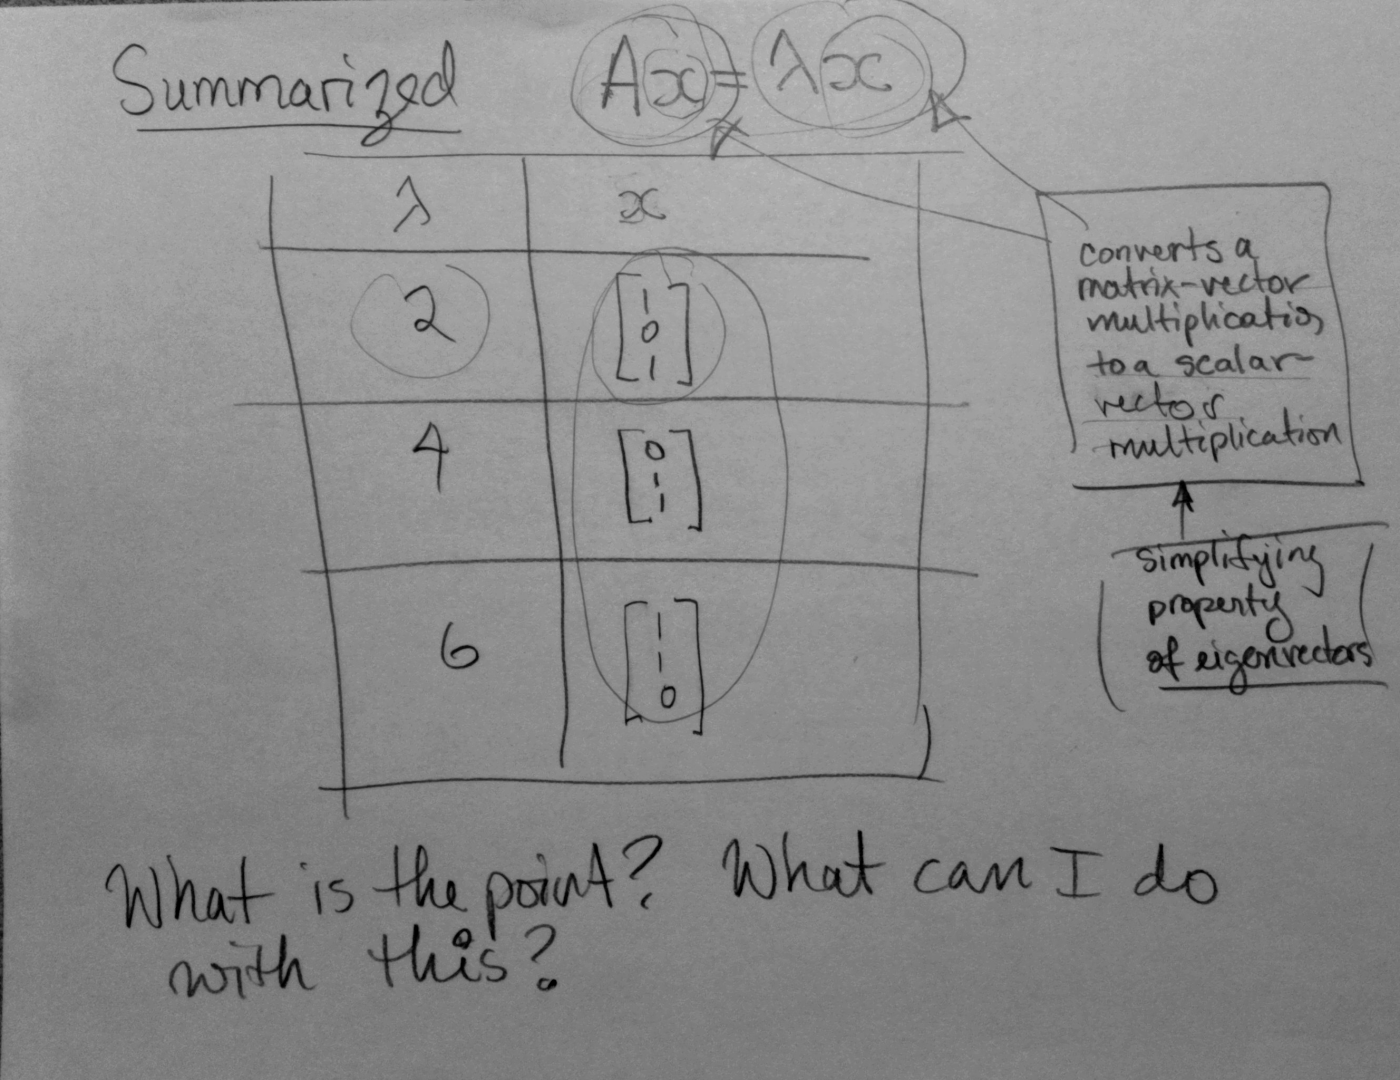 Summarized
Ax = λx
λ x
2 [1 0 1]
4 [0 1 1]
6 [1 1 0]
converts a
matrix-vector
multiplication
to a scalar-
vector
multiplication
simplifying
property
of eigenvectors
What is the point? What can I do
with this?